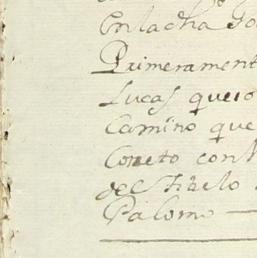 En la dha
Primerament
Lucas que io
Camino que
Coreto con
de
Palomo